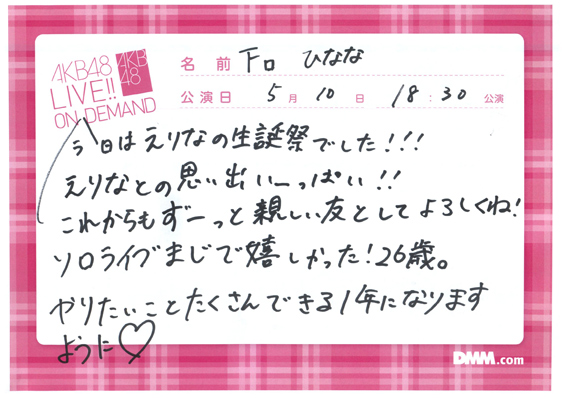 AKB48
LIVE!!
ON DEMAND
AKB
48
名前 下口 ひなな
公演日 5月10日 18:30公演
今日はえりなの生誕祭でした!!!
えりなとの思い出いーっぱい!!
これからもずーっと親しい友としてよろしくね!
ソロライブまじで嬉しかった!26歳。
やりたいことたくさんできる1年になります
ように♡
DMM.com